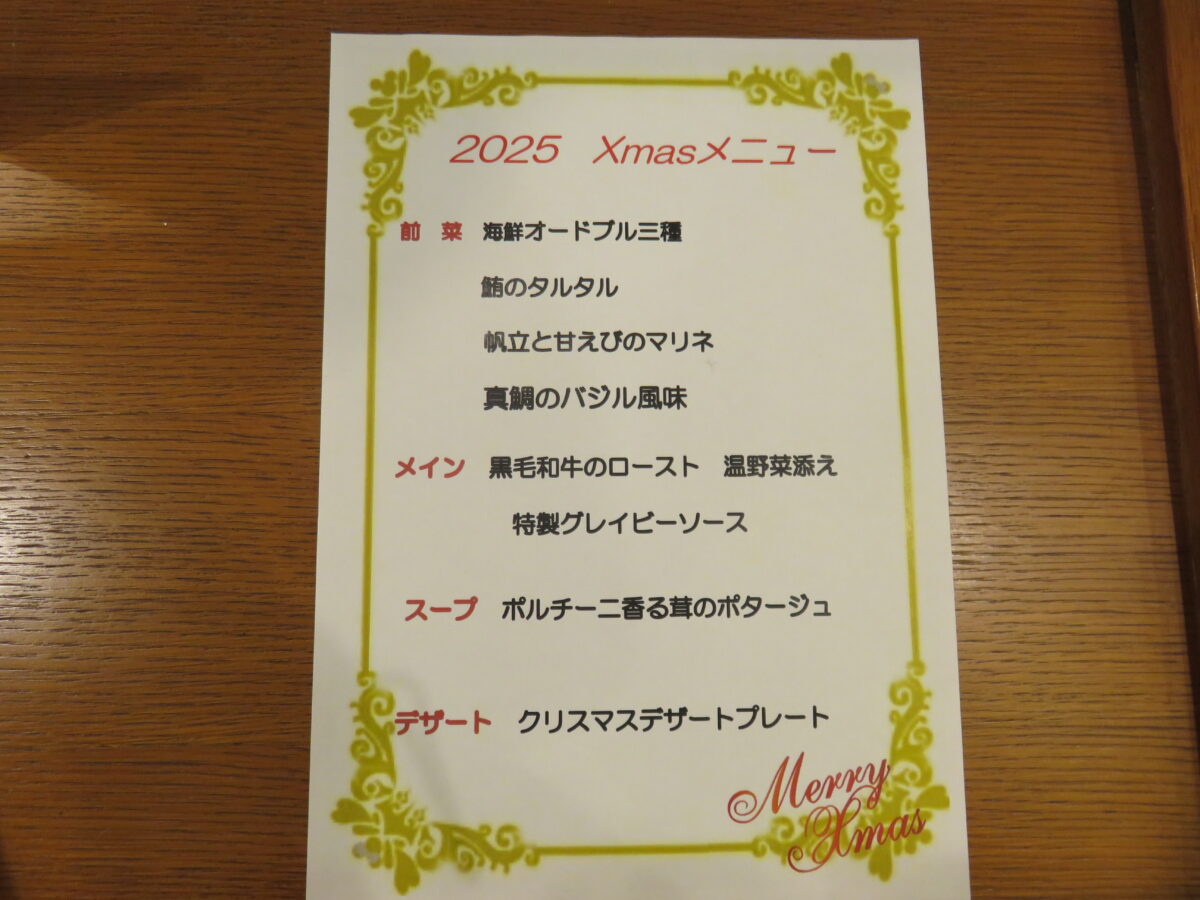 2025　Xmasメニュー
前　菜　海鮮オードブル三種
鮪のタルタル
帆立と甘えびのマリネ
真鯛のバジル風味
メイン　黒毛和牛のロースト　温野菜添え
特製グレイビーソース
スープ　ポルチーニ香る茸のポタージュ
デザート　クリスマスデザートプレート
Merry
Xmas